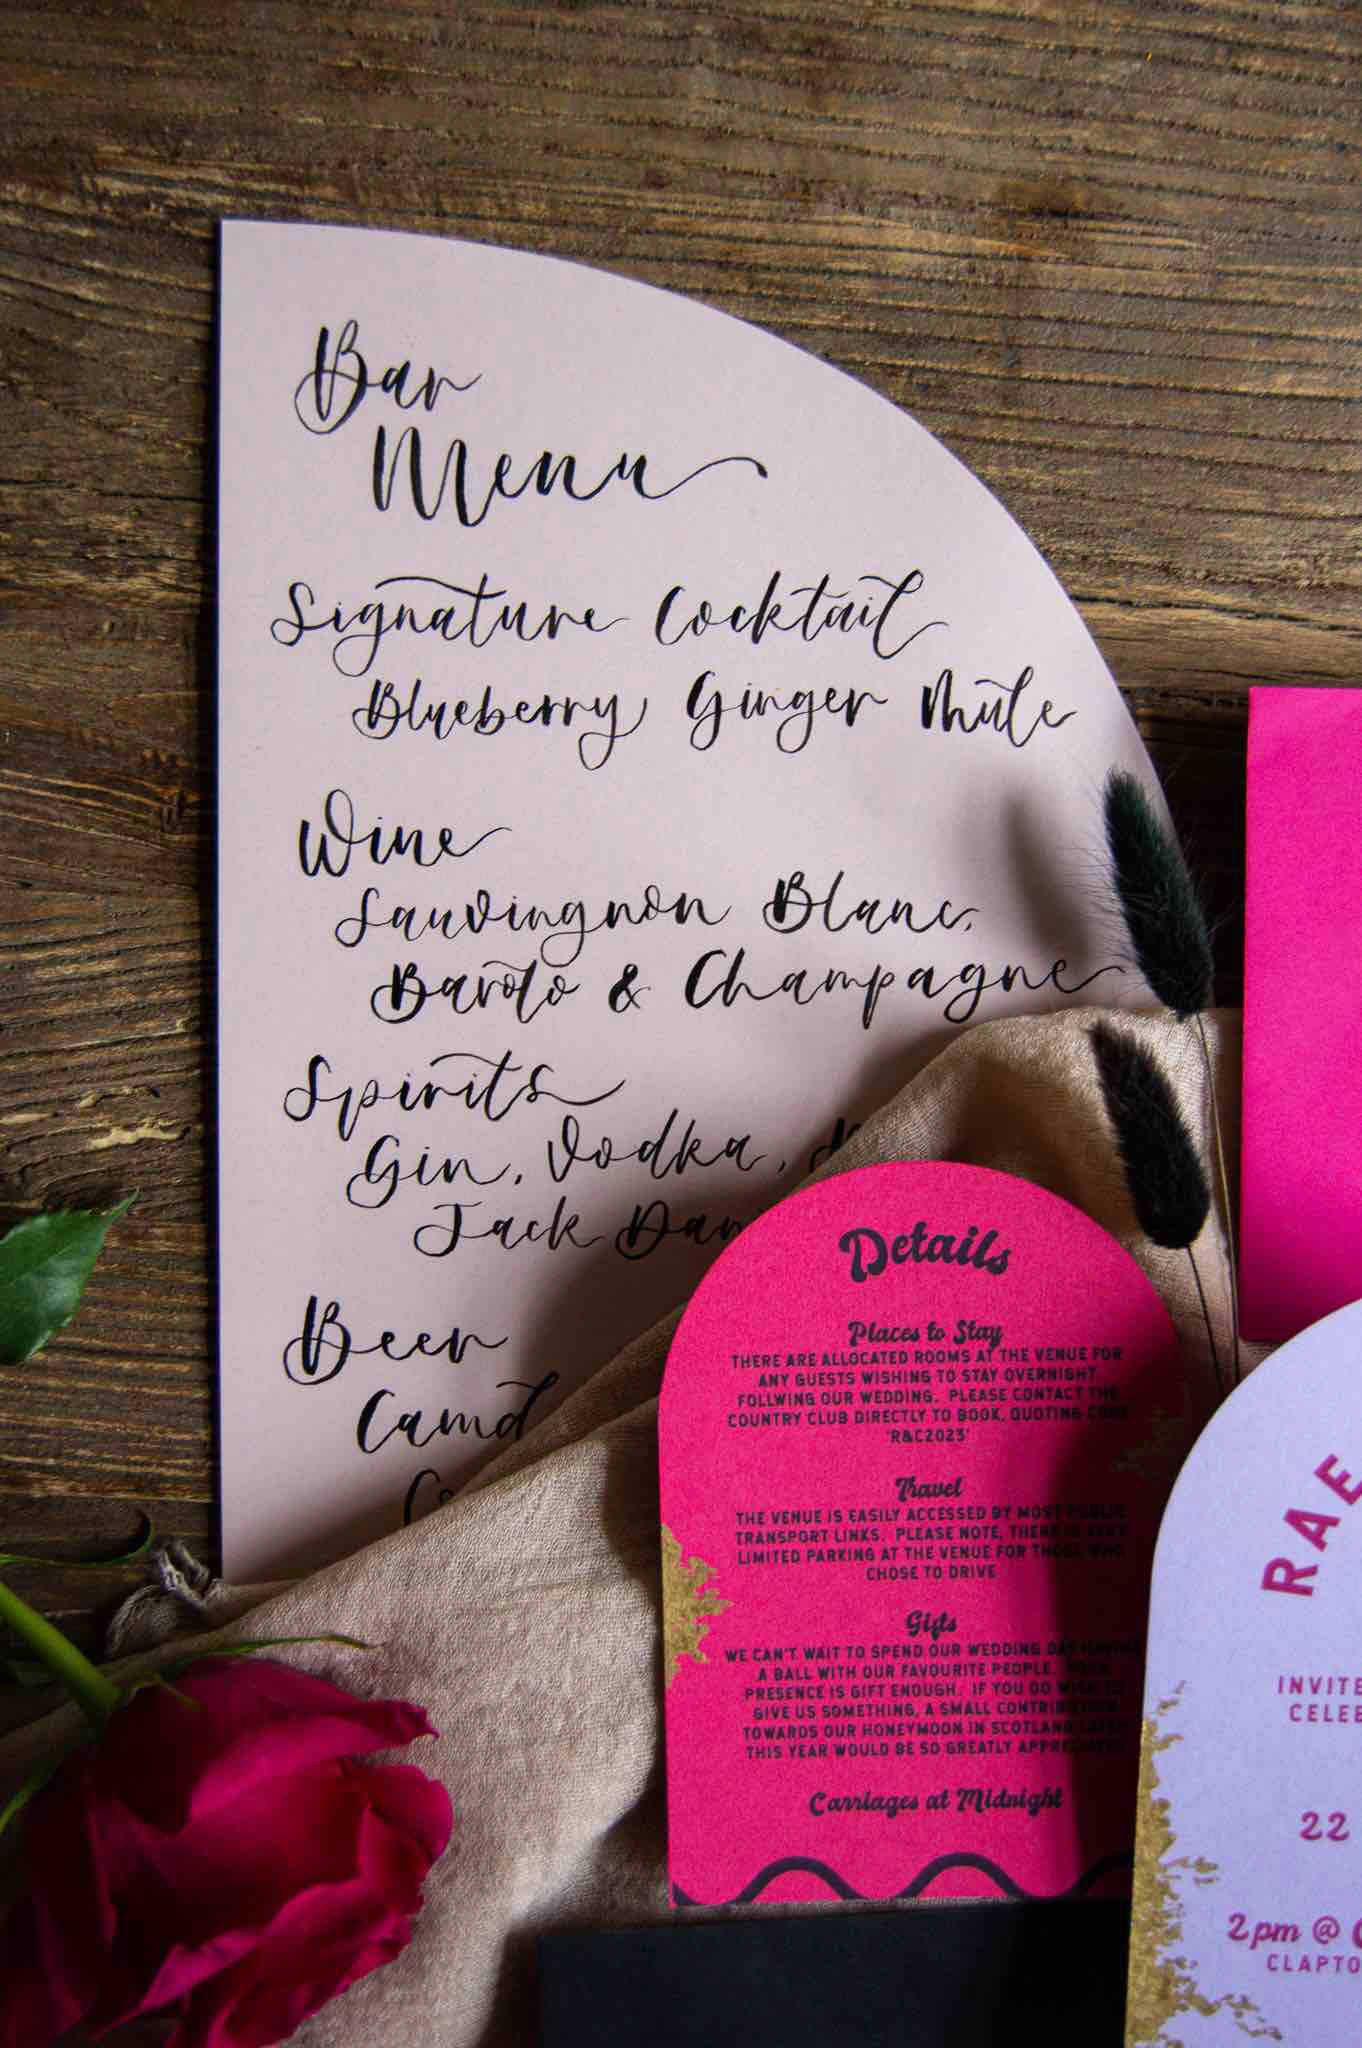 Bar
Menu
Signature Cocktail
Blueberry Ginger Mule
Wine
Sauvingnon Blanc,
Barolo & Champagne
Spirits
Gin, Vodka,
Jack
Beer
Details
Places to Stay
THERE ARE ALLOCATED ROOMS AT THE VENUE FOR
ANY GUESTS WISHING TO STAY OVERNIGHT
FOLLWING OUR WEDDING. PLEASE CONTACT THE
COUNTRY CLUB DIRECTLY TO BOOK, QUOTING CODE
'R&C2023'
Travel
THE VENUE IS EASILY ACCESSED BY MOST PUBLIC
TRANSPORT LINKS. PLEASE NOTE, THERE IS VERY
LIMITED PARKING AT THE VENUE FOR THOSE WHO
CHOSE TO DRIVE
Gifts
WE CAN'T WAIT TO SPEND OUR WEDDING DAY HAVING
A BALL WITH OUR FAVOURITE PEOPLE. YOUR
PRESENCE IS GIFT ENOUGH. IF YOU DO WISH TO
GIVE US SOMETHING, A SMALL CONTRIBUTION
TOWARDS OUR HONEYMOON IN SCOTLAND LATER
THIS YEAR WOULD BE SO GREATLY APPRECIATED
Carriages at Midnight
RAE
INVITE
CELEB
22
2pm @
CLAPTO